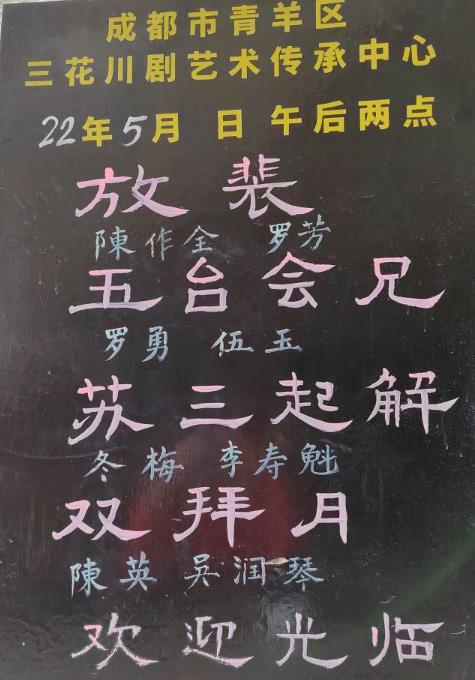 成都市青羊区
三花川剧艺术传承中心
22年5月 日 午后两点
放裴
陳作全 罗芳
五台会兄
罗勇 伍玉
苏三起解
冬梅 李寿魁
双拜月
陳英 吴润琴
欢迎光临